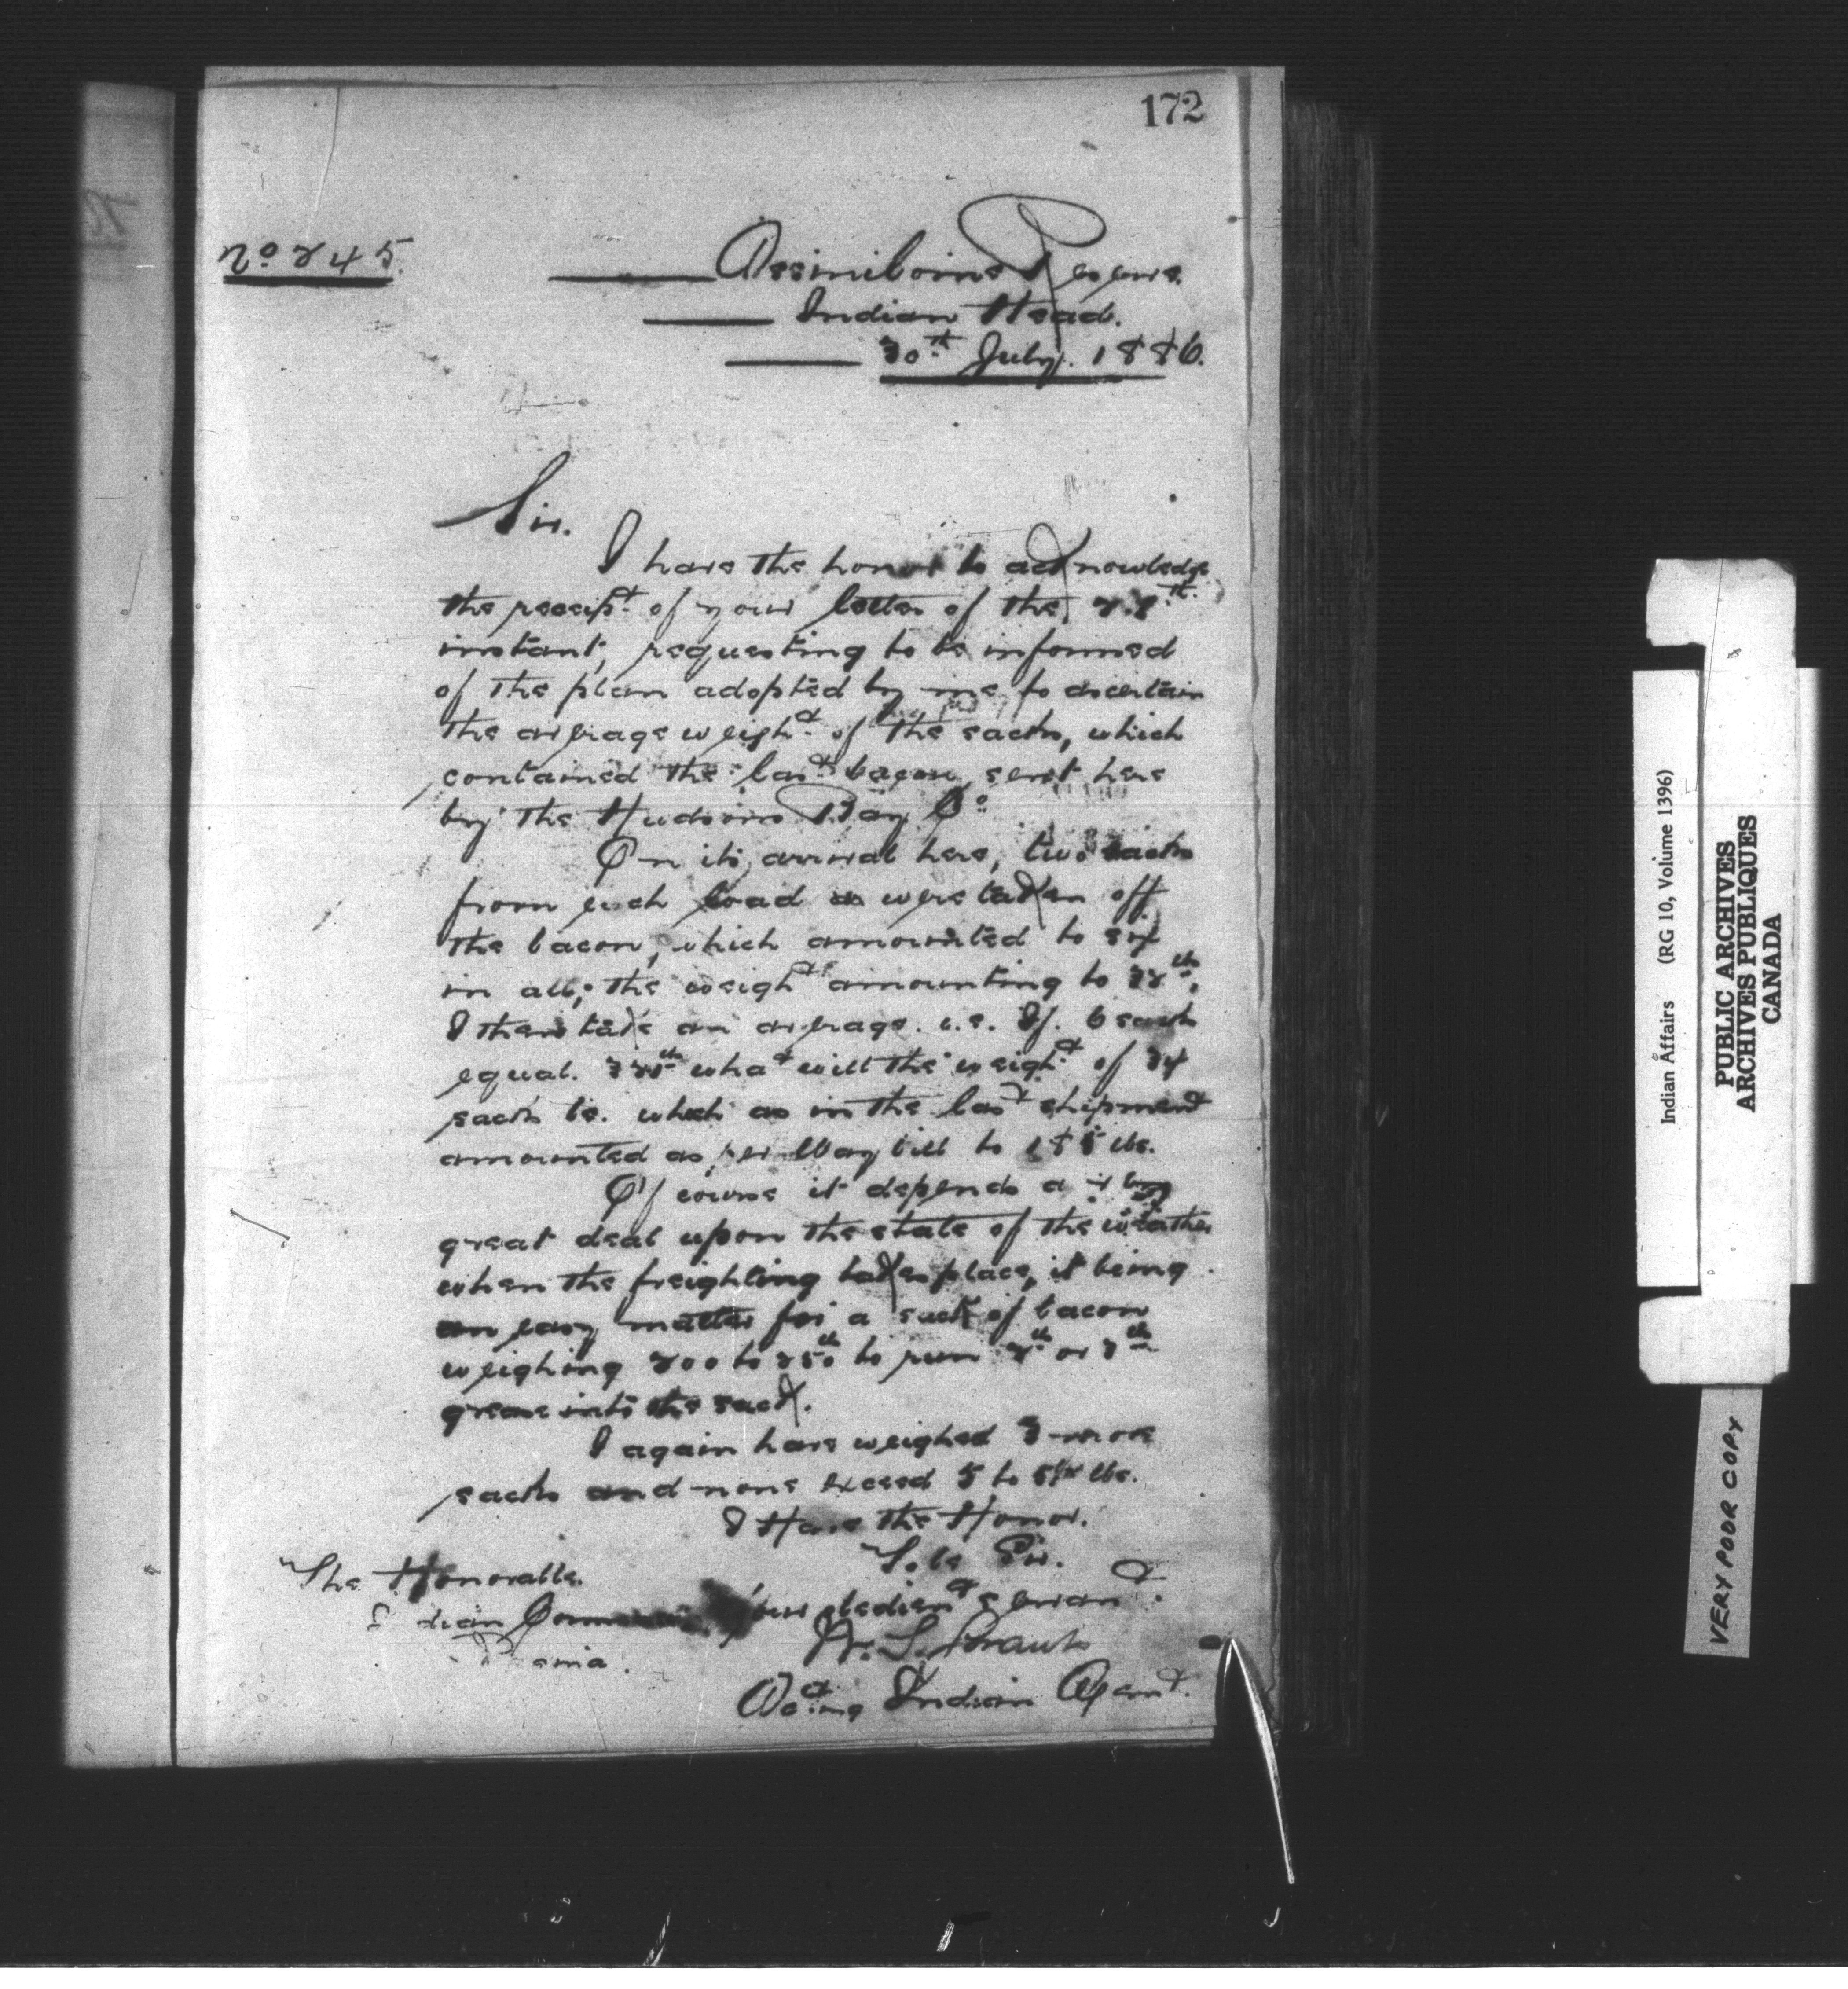 172
No 245.
Assiniboine Reserve.
Indian Head.
30th July. 1886.
Sir.
I have the honor to acknowledge
the receipt of your letter of the 28th
instant, requesting to be informed
of the plan adopted by me to ascertain
the average weight of the sacks, which
contained the last bacon, sent here
by the Hudsons Bay Co
On its arrival here, two sacks
from each load were taken off
the bacon, which amounted to six
in all; the weight amounting to
I then take an average. i.e. If. 6 sacks
equal. what will the weight of 34
sacks be. which as in the last shipment
amounted as per Way bill to lbs.
Of course it depends a very
great deal upon the state of the weather
when the freighting takes place, it being
an easy matter for a sack of bacon
weighing 200 to 250 lb to run 2 lb or 3 lb
grease into the sack.
I again have weighed 3 more
sacks and none exceed 5 to 5½ lbs.
I Have the Honor.
To be Sir.
Your obedient servant.
W. S. Grant
Acting Indian Agent.
The Honorable.
Indian Commissioner
Regina.
Indian Affairs (RG 10, Volume 1396)
PUBLIC ARCHIVES
ARCHIVES PUBLIQUES
CANADA
VERY POOR COPY